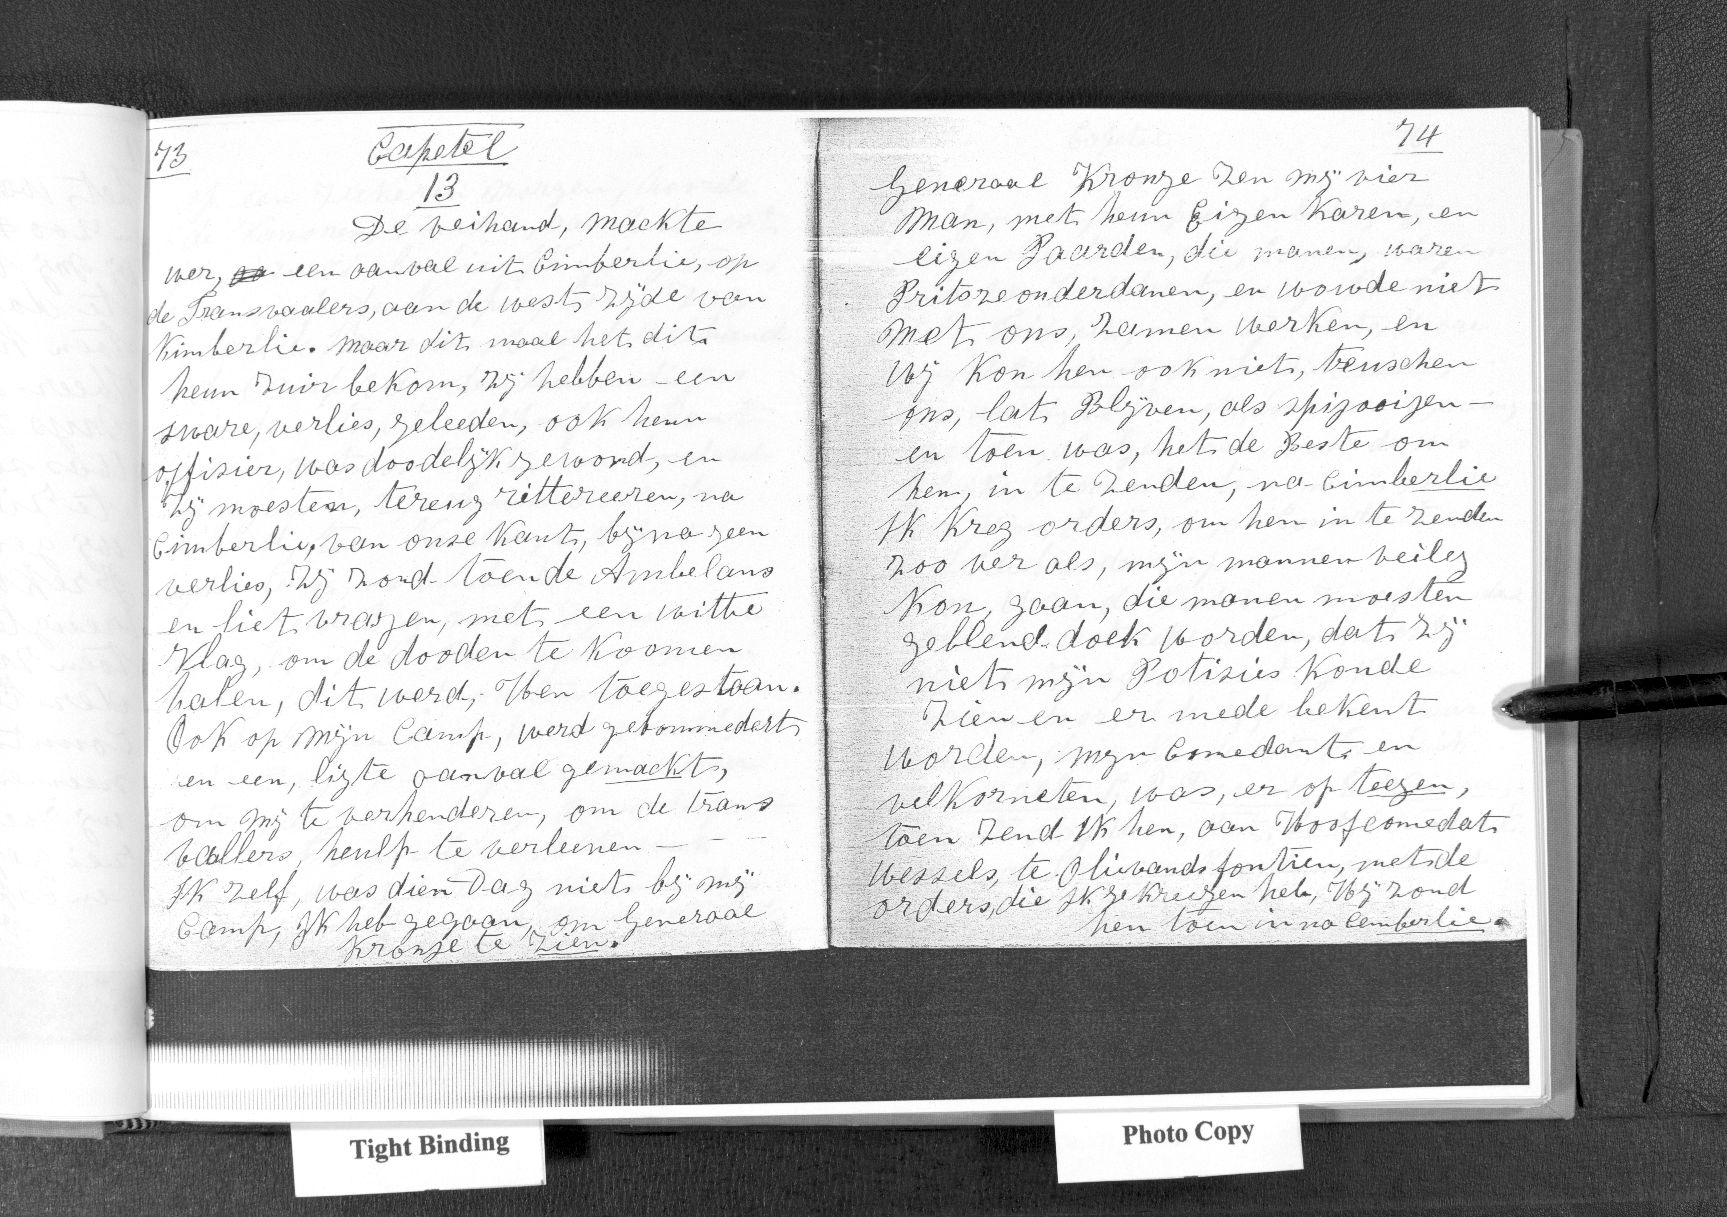 73
Capetel
13
De veihand, mackte
wer, een aanval uit Cimberlie, op
de Transvaalers, aan de west zijde van
Kimberlie. maar dit maal het dit
heun zuir bekom, zij hebben een
sware, verlies, geleeden, ook heun
offisier, was doodelijk gewond, en
zij moesten, tereug rittereeren, na
Cimberlie, van onse kant, bij na geen
verlies, zij zond toen de Ambelans
en liet vragen, met een witte
vlag, om de dooden te koomen
halen, dit werd, Hen toegestaan.
Ook op mijn Camp, werd gebommedert
en een, ligte aanval gemackt,
om mij te verhenderen, om de trans
vallers, heulp te verleenen —
Ik zelf, was dien Dag niet bij mij
Camp, Ik heb gegaan, om Generaal
Kronje te zien.
74
Generaal Kronge zen mij vier
man, met heun Eigen Karen, en
eigen Paarden, die manen, waren
Pritsze onderdanen, en wowde niet
met ons, zamen werken, en
wij kon hen ook niet, teuschen
ons, lat Blijven, als spizooizen —
en toen was, het de Beste om
hem, in te zenden, na Cimberlie
Ik kreg orders, om hen in te zenden
zoo ver als, mijn mannen veileg
kon, gaan, die manen moesten
geblend doek worden, dat zij
niet mijn Potisies konde
zien en er mede bekent
worden, mijn Comedant en
velkorneten, was, er op teegen,
toen zend Ik hen, aan Hoofcomedat
Wessels, te Olievandsfontien, met de
orders, die Ik gekreigen heb, Hij zond
hen toen in na Cemberlie.
Tight Binding
Photo Copy